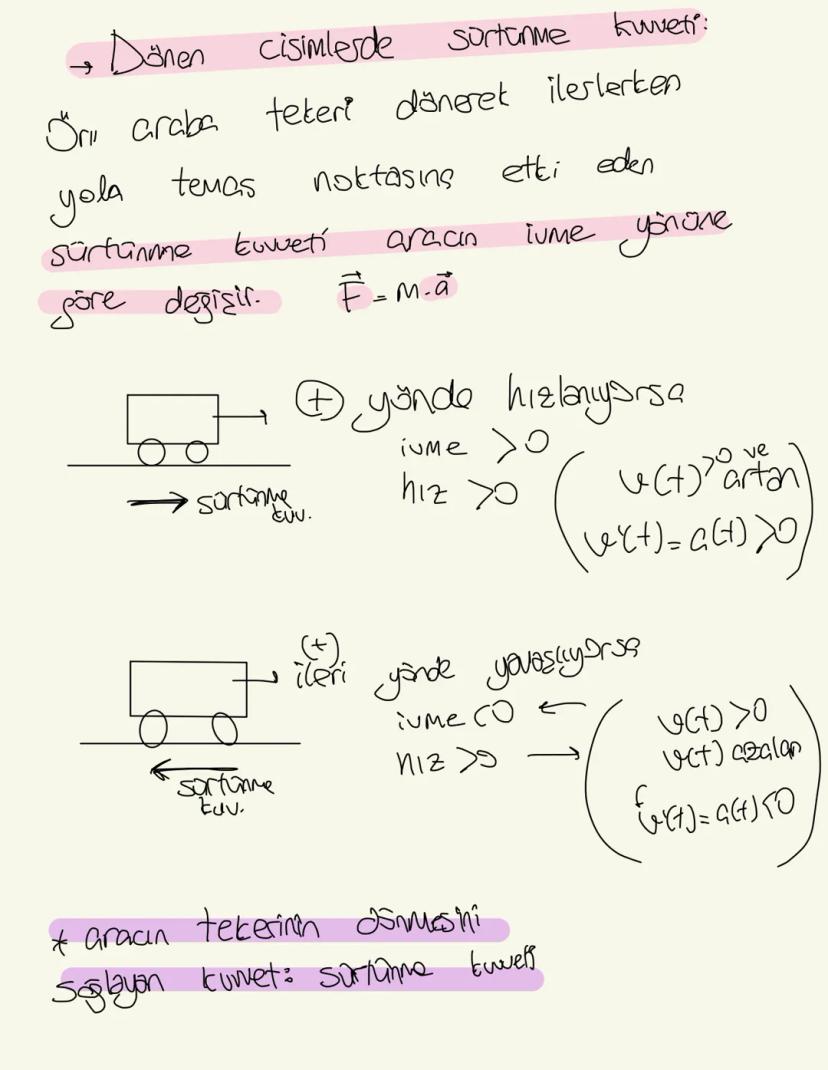 → Dönen cisimlerde sürtünme kuvveti:
Örn araba tekeri dönerek ilerlerken
yola temas noktasına etki eden
sürtünme kuvveti aracın ivme yönüne
göre değişir. F = m.a
(+) yönde hızlanıyorsa
ivme >0
hız >0
v(t)>0 ve artan
v'(t)=a(t)>0
→ sürtünme
kuv.
(+)
ileri yönde yavaşlıyorsa
ivme <0 ←
hız >0 →
v(t)>0
v(t) azalan
v'(t)=a(t)<0
← sürtünme
kuv.
* aracın tekerinin dönmesini
sağlayan kuvvet: sürtünme kuvveti